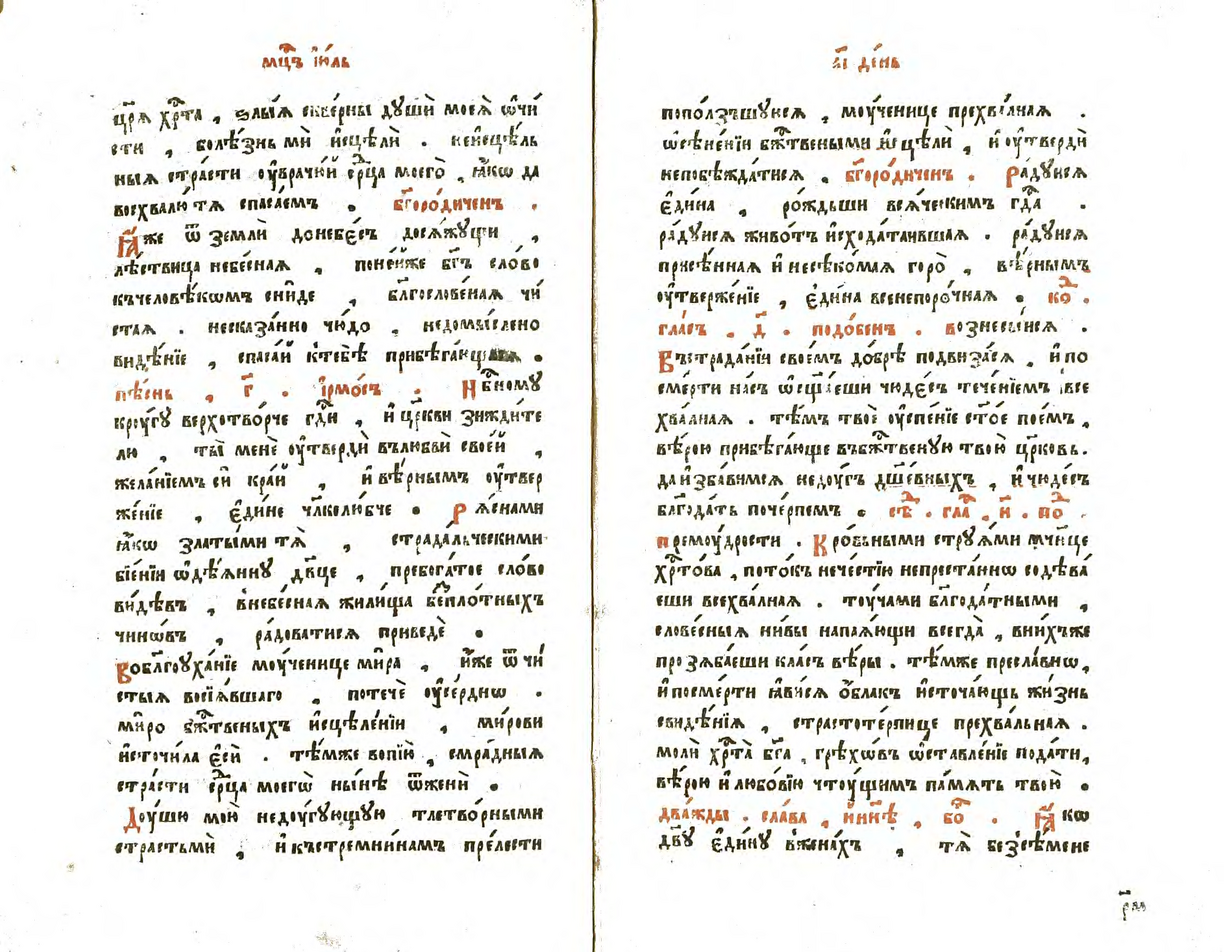 мц҃ъ і҆ю́ль
цр҃ѧ̀ хрⷭ҇та̀ , ѕлы́ѧ скве́рны дꙋшѝ моеѧ̀ ѡ҆чи́
сти , болѣ́знь мѝ и҆сцѣлѝ . неисцѣ́ль
ныѧ стра́сти оу҆врачꙋ́й ср҃ца моего̀ , ꙗ҆́кѡ да
восхвалю̀ тѧ̀ спаса́емъ . бг҃оро́диченъ .
Ꙗ҆́же ѿ землѝ донебе́съ досѧжꙋ́щи ,
лѣ́ствица небе́снаѧ , поне́йже бг҃ъ сло́во
къчеловѣ́кѡмъ сни́де , благослове́наѧ чи́
стаѧ . несказа́нно чю́до , недомы́слено
видѣ́нїе , спаса́й ктебѣ̀ прибѣга́ющаѧ .
пѣ́снь , г҃ . і҆рмо́съ . Нбⷭ҇номꙋ
крꙋ́гꙋ верхотво́рче гдⷭ҇и , и҆ цр҃кви зижди́те
лю , ты̀ менѐ оу҆твердѝ вълюбвѝ свое́й ,
жела́нїемъ сѝ кра́й , и҆вѣ́рнымъ оу҆твер
же́нїе , є҆ди́не чл҃колю́бче . Рѧ́снами
ꙗ҆́кѡ златы́ми тѧ̀ , страда́льческими
бїе́нїи ѡ҆дѣ́ѧннꙋ дв҃це , пребога́тое сло́во
ви́дѣвъ , внебе́снаѧ жили́ща беспло́тныхъ
чинѡ́въ , ра́доватисѧ приведѐ .
Воблг҃оꙋха́нїе моу́ченице ми́ра , и҆́же ѿ чи́
стыѧ восїѧ́вшаго , потечѐ оу҆се́рднѡ .
ми́ро бж҃твеныхъ и҆сцѣле́нїи , ми́рови
и҆сточи́ла є҆сѝ . тѣ́мже вопїю̀ , смра́дныѧ
стра́сти ср҃ца моегѡ̀ ны́нѣ ѿженѝ .
Дꙋ́шю мою̀ недоу́гующую тлетво́рными
страстьмѝ , и҆ къстремни́намъ пре́лести
а҃і де́нь
попо́лзъшꙋюсѧ , моу́ченице прехва́лнаѧ .
ѡ҆сѣне́нїи бж҃твеными и҆сцѣлѝ , и҆ оу҆твердѝ
непобѣжда́тисѧ . бг҃оро́диченъ . Ра́дꙋисѧ
є҆ди́на , ро́ждьши всѧ́ческимъ гдⷭ҇а .
ра́дꙋисѧ живо́тъ и҆схода́таившаѧ . ра́дꙋисѧ
присѣ́ннаѧ и҆ несѣко́маѧ горо̀ , вѣ́рнымъ
оу҆твержє́нїе , є҆ди́на всенепоро́чнаѧ . ко҃ .
гла́съ . д҃ . подо́бенъ . вознесы́исѧ .
Въстрада́нїи свое́мъ до́брѣ подвиза́сѧ , и҆ по
сме́рти на́съ ѡ҆сщ҃а́еши чюде́съ тече́нїемъ все
хва́лнаѧ . тѣ́мъ твоѐ оу҆спе́нїе ст҃о́е пое́мъ ,
вѣ́рою прибѣга́юще въбж҃твеную твою̀ цр҃ковь .
да и҆зба́вимсѧ недоу́гъ дш҃е́вныхъ , и҆ чюде́съ
благода́ть поче́рпемъ . сѣ҃ . гла҃ . и҃ . по҃ .
премоу́дрости . Кро́вьными стрꙋѧ́ми мч҃нице
хрⷭ҇то́ва , пото́къ нече́стїю непреста́ннѡ содѣва́
еши всехва́лнаѧ . тоу́чами благода́тными ,
слове́сныѧ ни́вы напаѧ́ющи всегда̀ , вни́хъже
прозѧба́еши кла́съ вѣ́ры . тѣ́мже пресла́внѡ ,
и҆ посме́рти ꙗ҆ви́сѧ ѡ҆́блакъ и҆сточа́ющь жи́знь
свидѣ́нїѧ , страстоте́рпице прехва́льнаѧ .
молѝ хрⷭ҇та̀ бг҃а , грѣхѡ́въ ѡ҆ставле́нїе пода́ти ,
вѣ́рою и҆ любо́вїю чтоу́щимъ па́мѧть твою̀ .
два́жды . сла́ва , и҆ ны́нѣ , бо҃ . Ꙗ҆́кѡ
дв҃ꙋ є҆ди́нꙋ вжена́хъ , тѧ̀ без̾сѣ́мене